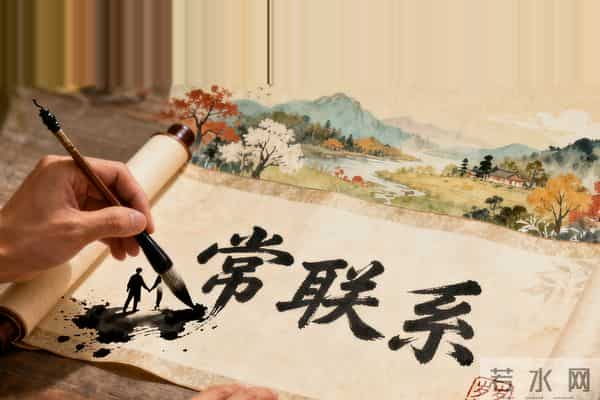 常联系
若水网